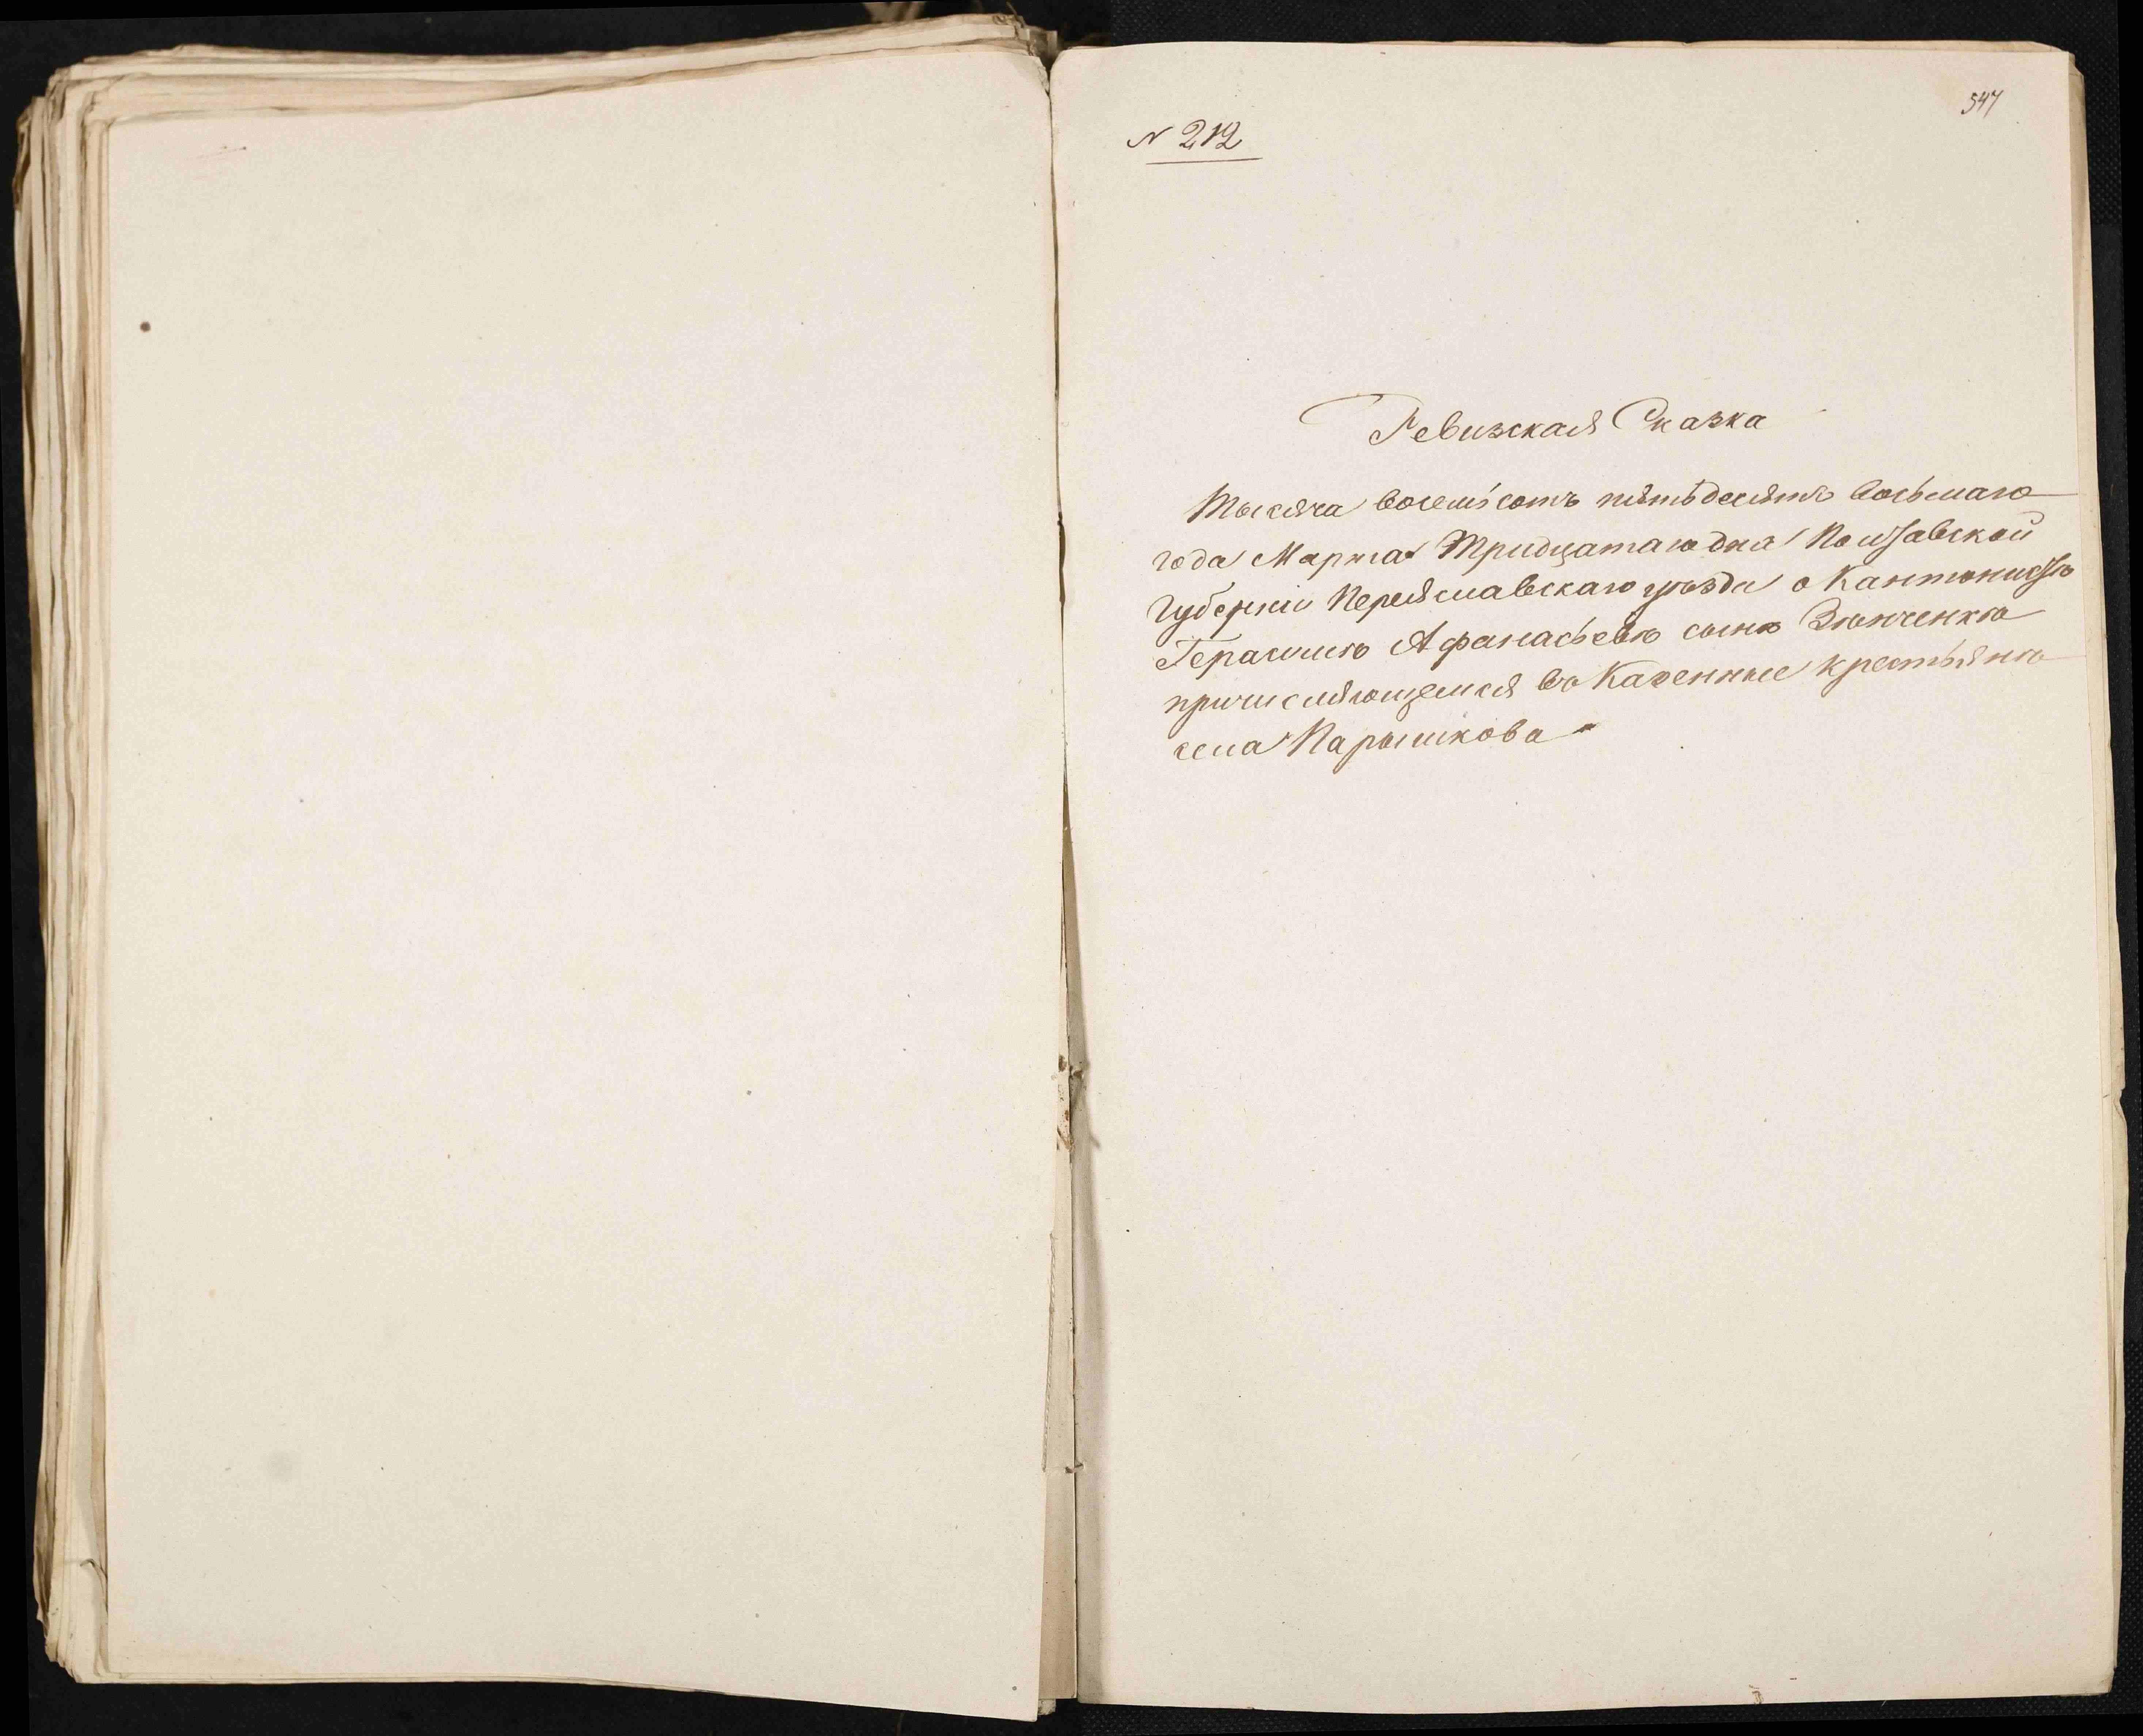 547
N 212
Ревизская Сказка
Тысяча восемьсотъ пятьдесятъ восьмаго
года Марта Тридцатаго дня Полтавской
Губерніи Переяславскаго уѣзда о Кантонистѣ
Герасимѣ Афанасьевѣ сынѣ Зинченкѣ
причисляющемся въ Казенные крестьяне
села Парышкова